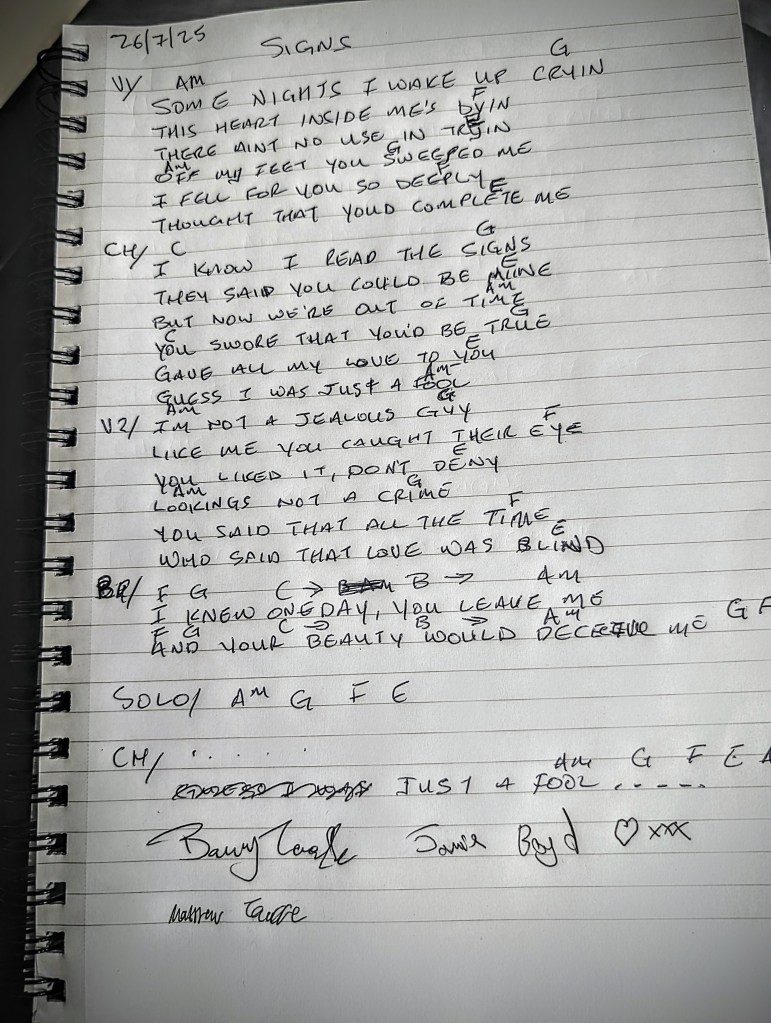 26/7/25 SIGNS
V/ AM G
SOME NIGHTS I WAKE UP CRYIN
F
THIS HEART INSIDE ME'S DYIN
E
THERE AINT NO USE IN TRYIN
AM G
OFF MY FEET YOU SWEEPED ME
F
I FELL FOR YOU SO DEEPLY
E
THOUGHT THAT YOUD COMPLETE ME
CH/ C G
I KNOW I READ THE SIGNS
E
THEY SAID YOU COULD BE MINE
AM
BUT NOW WE'RE OUT OF TIME
C G
YOU SWORE THAT YOU'D BE TRUE
E
GAVE ALL MY LOVE TO YOU
AM
GUESS I WAS JUST A FOOL
AM G
V2/ IM NOT A JEALOUS GUY
F
LIKE ME YOU CAUGHT THEIR EYE
E
YOU LIKED IT, DON'T DENY
AM G
LOOKINGS NOT A CRIME
F
YOU SAID THAT ALL THE TIME
E
WHO SAID THAT LOVE WAS BLIND
BR/ F G C → B → AM
I KNEW ONE DAY, YOU LEAVE ME
F G C → B → AM
AND YOUR BEAUTY WOULD DECEIVE ME G F
SOLO/ AM G F E
CH/ . . . . .
AM G F E A
JUST A FOOL . . . . .
Barry Jamie Boyd ♡ xxx
Matthew